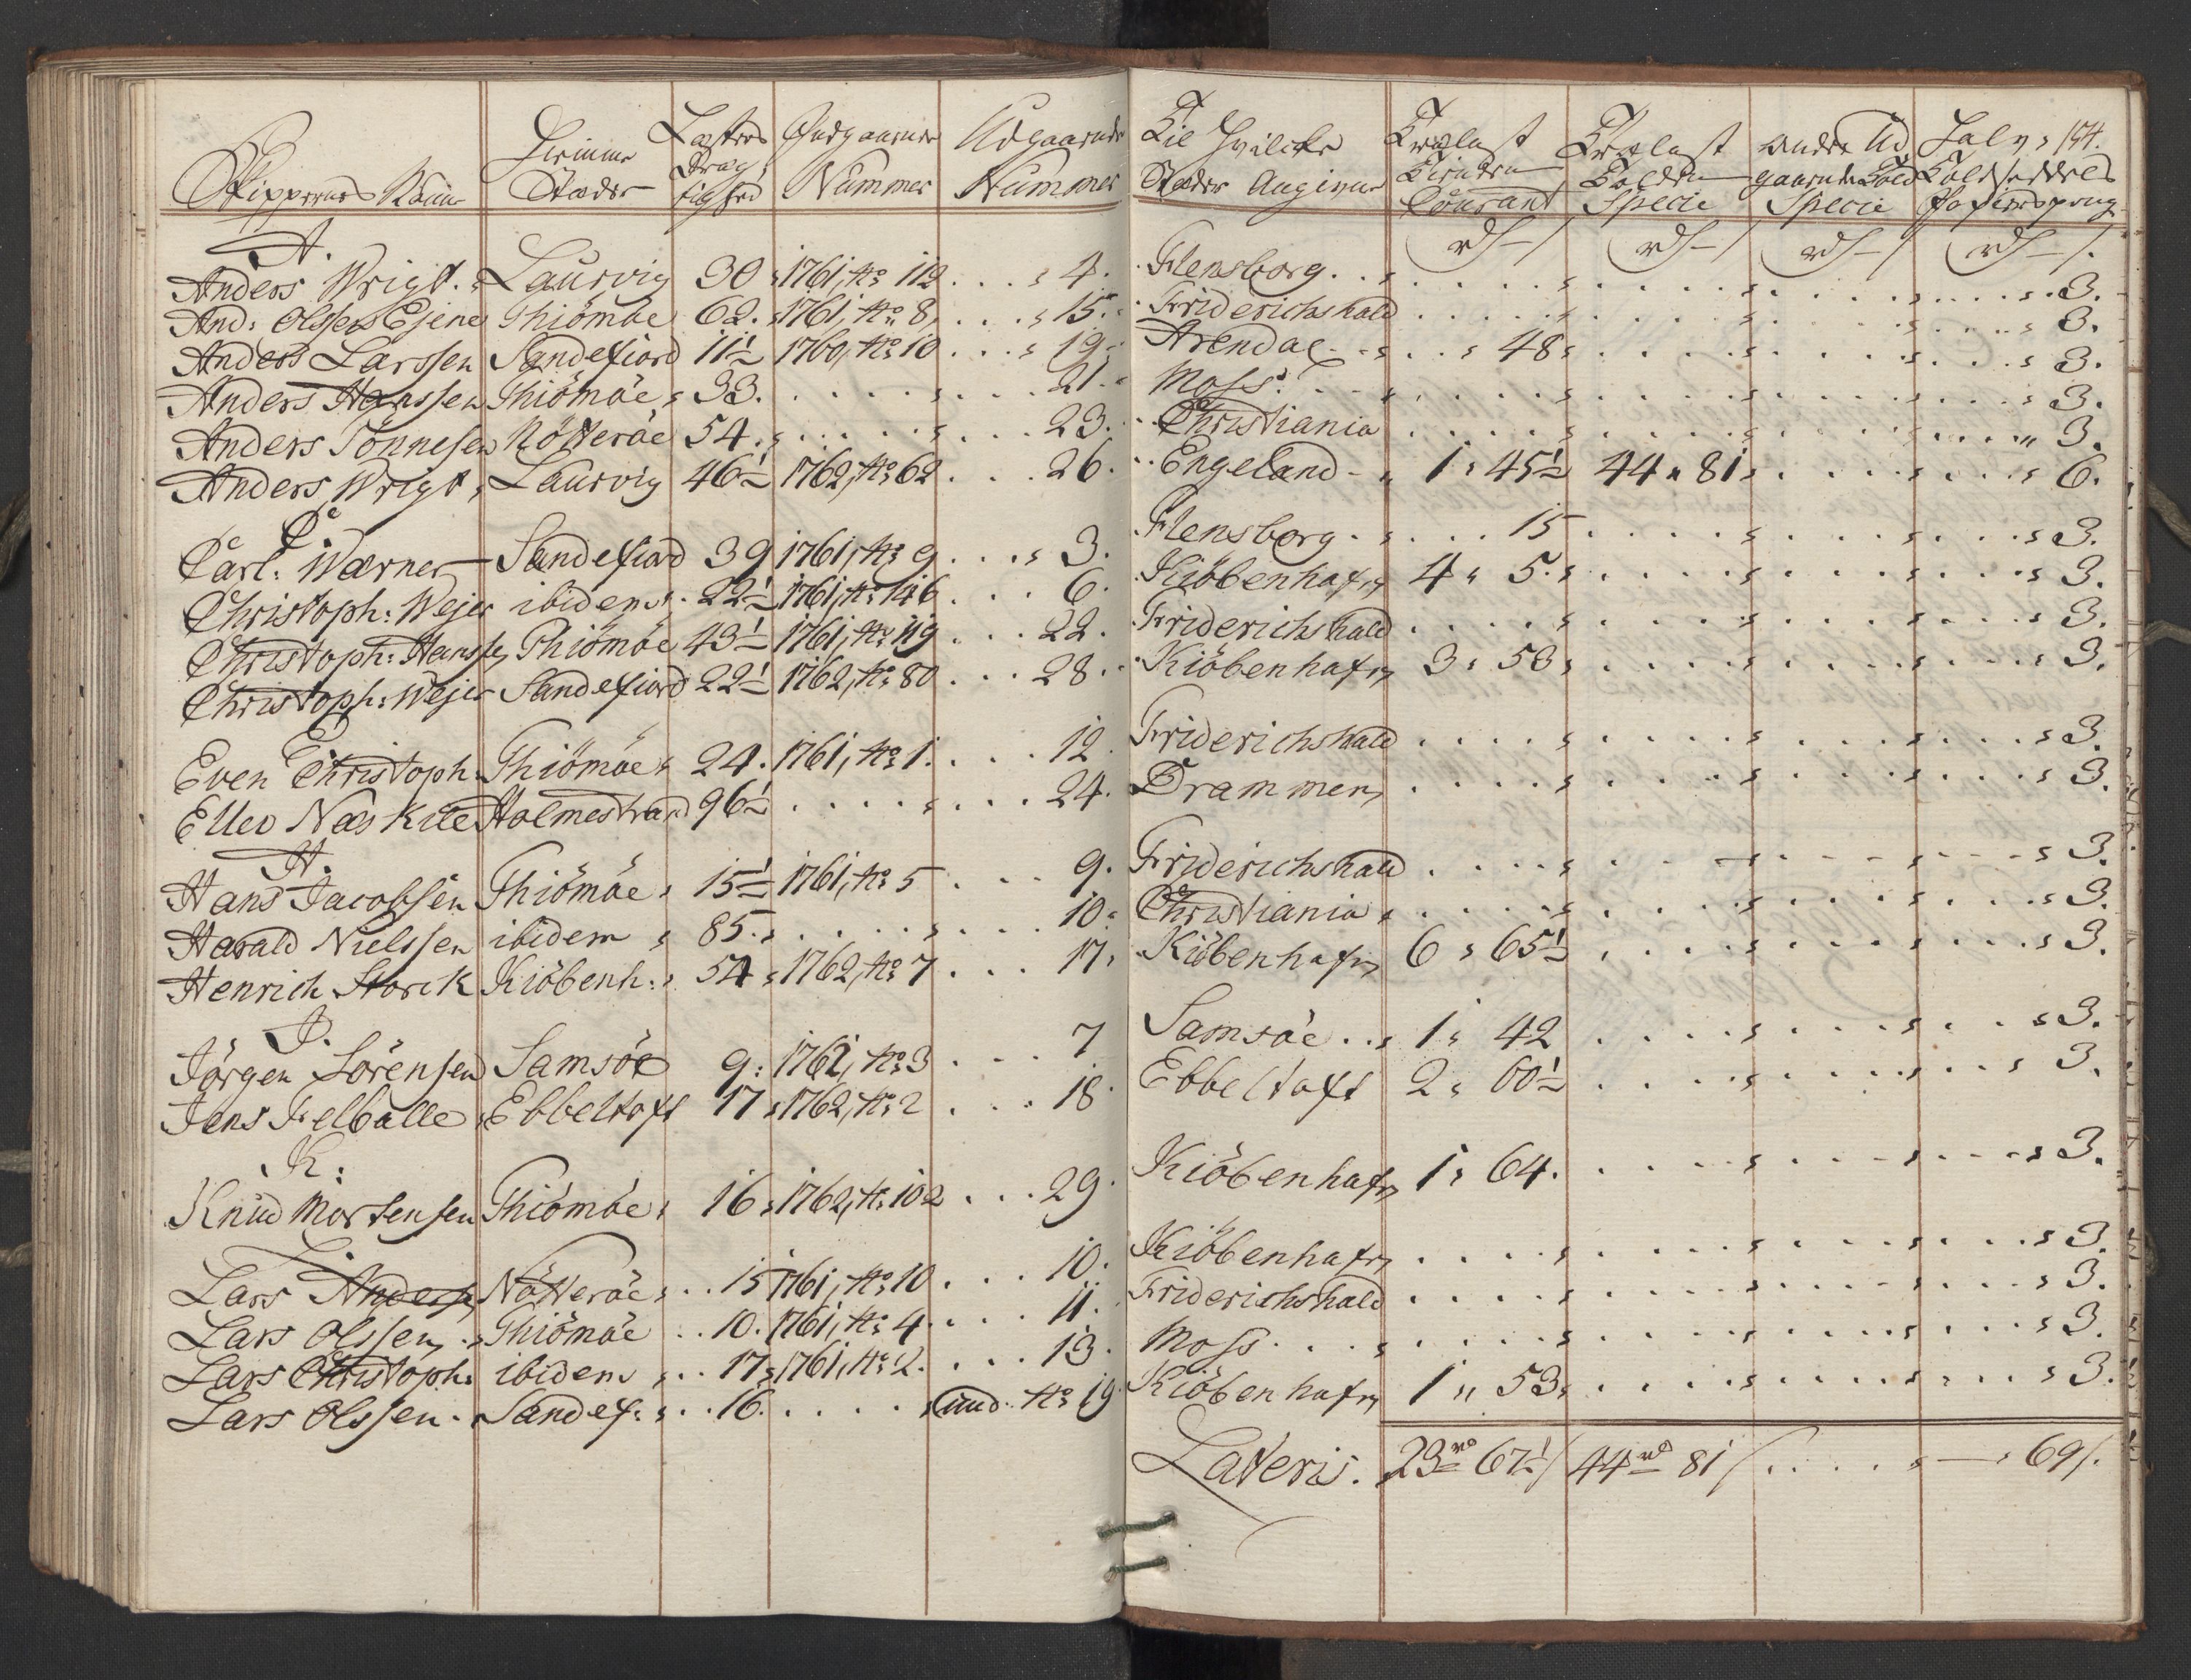 Skippernes Navn | Hiemme Stæder | Læsters Drægtighed | Indgaaende Nummer | Udgaaende Nummer | Til Hvilcke Stæder Angivne | Trælast Tienden Courant | Trælast Tolden Specie | Andre Udgaaende Told Specie | Fol: 174. Told Sedlers Papiirs penge
rd - s | rd - s | rd - s | rd - s.
A.
Anders Wrigt. | Laurvig | 30 | 1761, No 112 | 4. | Flensborg | 3.
And: Olssen Ejene | Thiömöe | 62. | 1761, No 8, | 15. | Friderichshald | 3.
Anders Larssen | Sandefiord | 11½ | 1760, No 10 | 19 | Arendal | 48 | 3.
Anders Hanssen | Thiömöe | 33. | 21. | Moss | 3.
Anders Tönnesen | Nötteröe | 54. | 23. | Christiania | 3.
Anders Wrigt | Laurvig | 46½ | 1762, No 62 | 26. | Engeland | 1 " 45½ | 44 " 81 | 6.
C
Carl: Wærner | Sandefiord | 39 | 1761, No 9 | 3. | Flensborg | 15 | 3.
Christoph: Wejer | ibidem | 22½ | 1761, No 146 | 6. | Kiöbenhafn | 4 " 5. | 3.
Christoph: Hanss | Thiömöe | 43½ | 1761, No 119 | 22. | Friderichshald | 3.
Christoph: Wejer | Sandefiord | 22½ | 1762, No 80 | 28. | Kiöbenhafn | 3 " 53 | 3.
E
Even Christoph: | Thiömöe | 24. | 1761, No 1. | 12. | Friderichshald | 3.
Ellev Næs Kile | Holmestrand | 96½ | 24. | Drammen | 3.
H.
Hans Jacobsen | Thiömöe | 15½ | 1761, No 5 | 9. | Friderichshald | 3.
Harald Nielssen | ibidem | 85. | 10 | Christiania | 3.
Henrich Storck | Kiöbenh: | 54 | 1762, No 7 | 17 | Kiöbenhafn | 6 " 65½ | 3.
J.
Jörgen Sörensen | Samsöe | 9: | 1762, No 3 | 7 | Samsöe | 1 " 42 | 3.
Jens Felballe | Ebbeltoft | 17 | 1762, No 2 | 18 | Ebbeltoft | 2 " 60½ | 3.
K:
Knud Mortensen | Thiömöe | 16 | 1762, No 102 | 29. | Kiöbenhafn | 1 " 64. | 3.
L.
Lars Anderss | Nötteröe | 15 | 1761, No 10 | 10. | Kiöbenhafn | 3.
Lars Olssen | Thiömöe | 10. | 1761, No 4. | 11. | Friderichshald | 3.
Lars Christoph: | ibidem | 17 | 1761, No 2. | 13. | Moss | 3.
Lars Olssen. | Sandef: | 16. | und. No 19 | Kiöbenhafn | 1 " 53 | 3.
Lateris. | 23 rd 67½ s | 44 rd 81 s | 69 s.